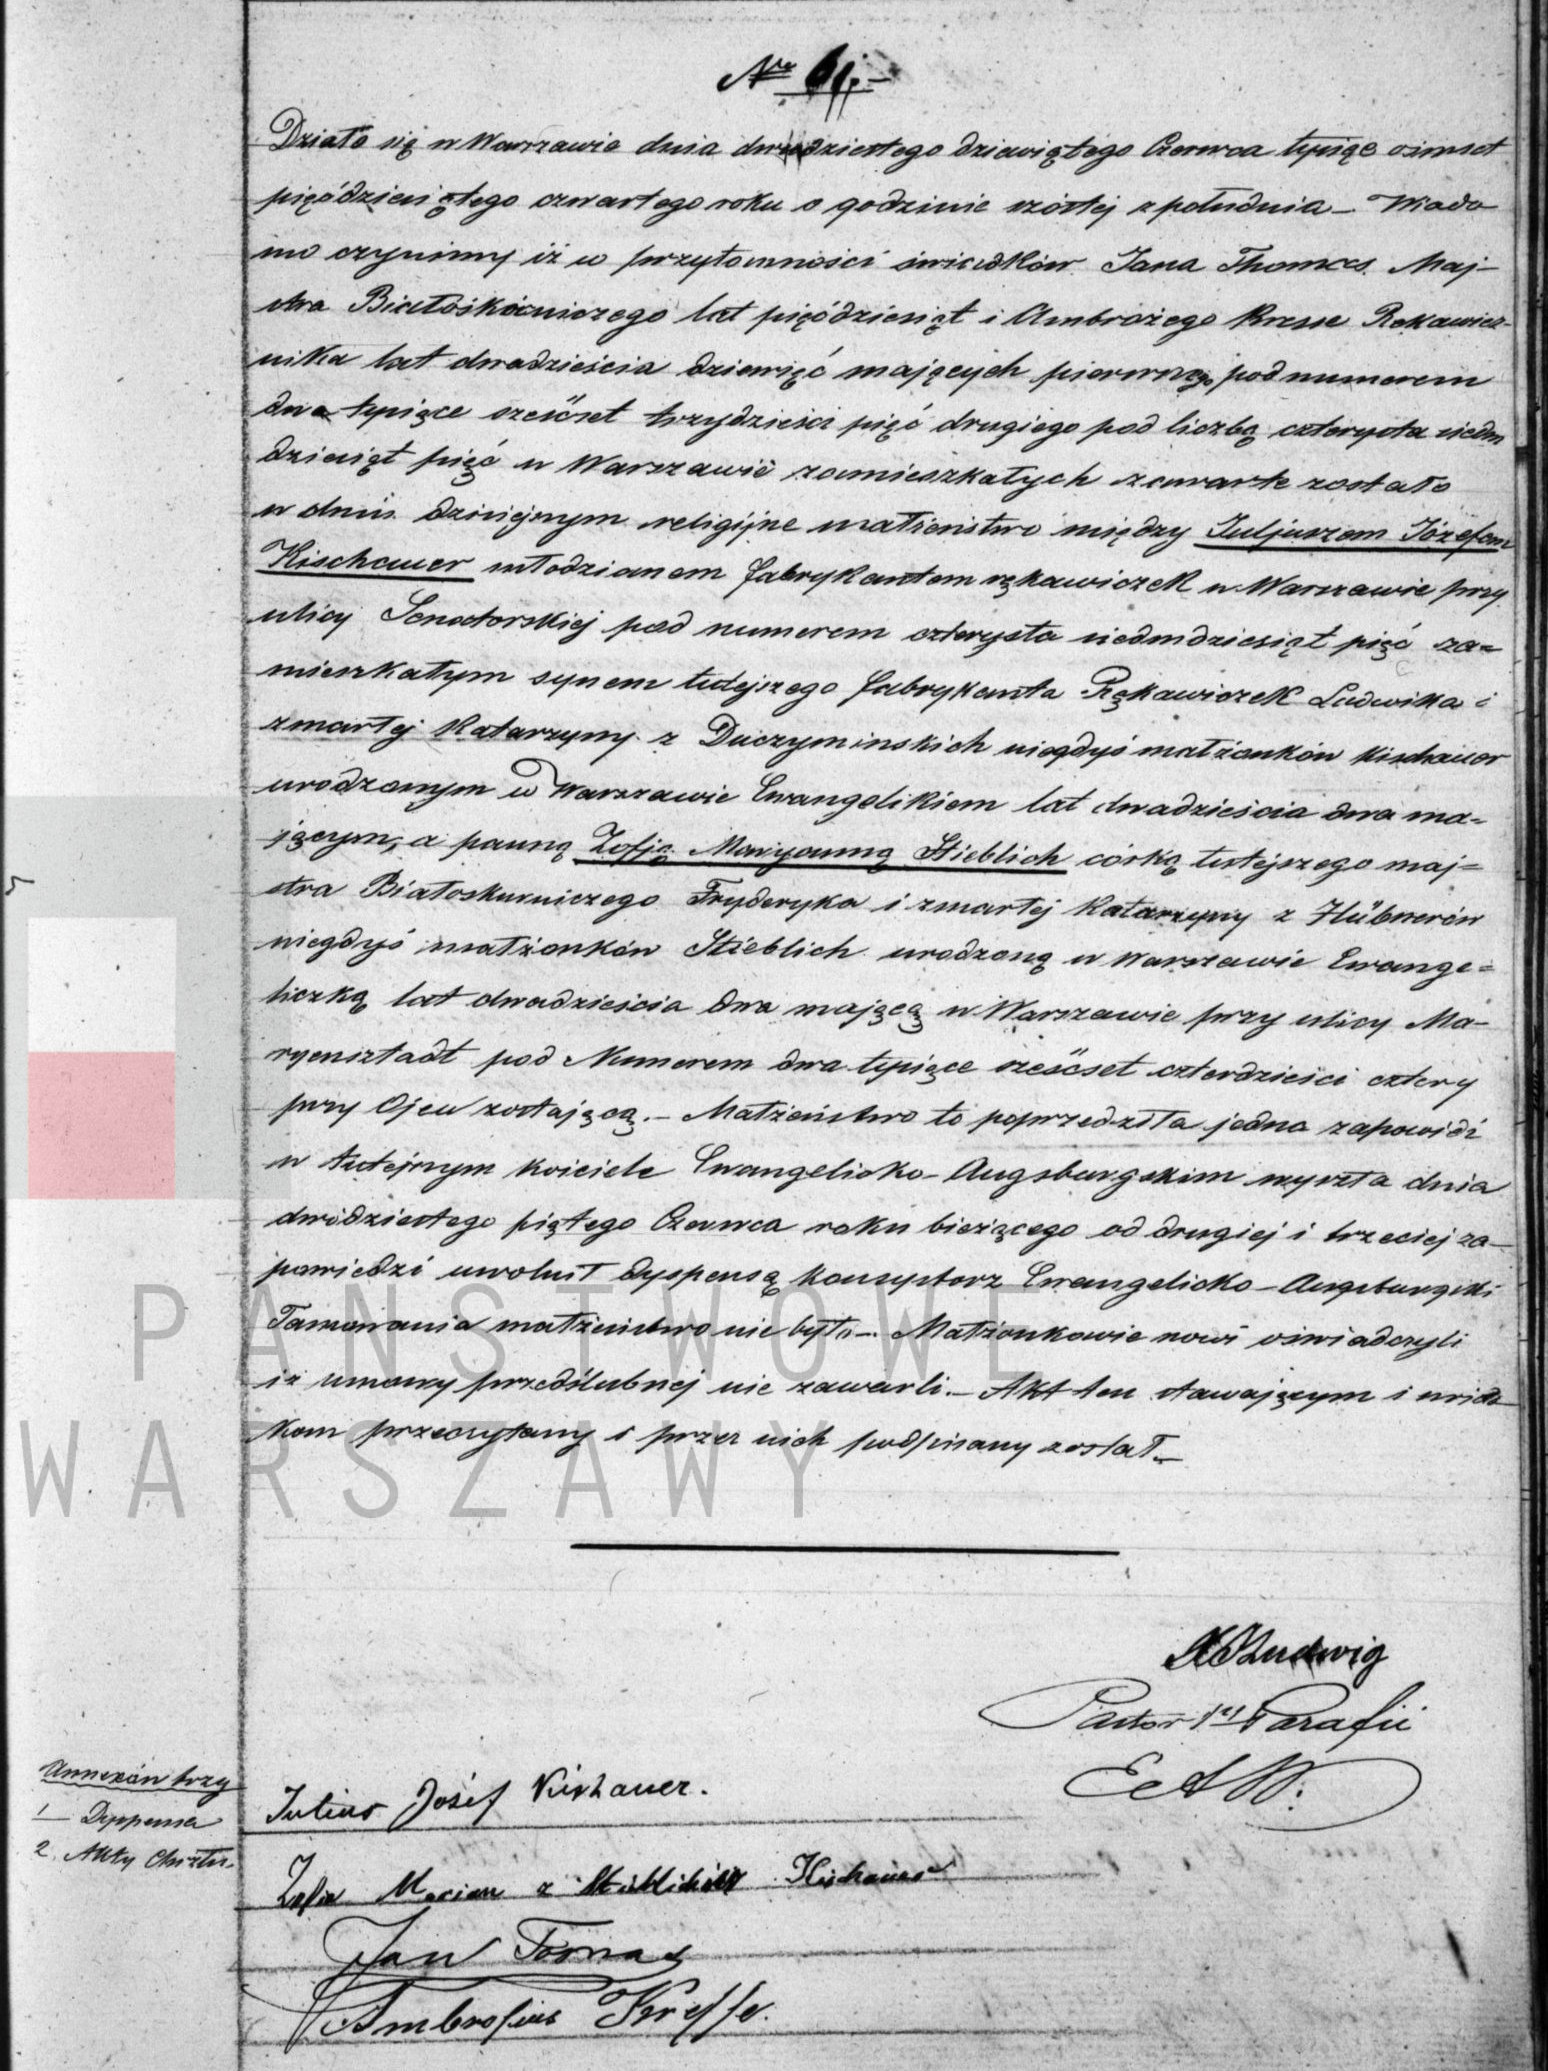 Nro 61.
Działo się w Warszawie dnia dwudziestego dziewiątego Czerwca tysiąc ośmset
pięćdziesiątego czwartego roku o godzinie szóstej z południa – Wiado
mo czynimy iż w przytomności świadków Jana Thomas Maj-
stra Białoskórniczego lat pięćdziesiąt i Ambrożego Kresse Rękawicz-
nika lat dwadzieścia dziewięć mających pierwszego pod numerem
dwa tysiące sześćset trzydzieści pięć drugiego pod liczbą czterysta siedm
dziesiąt pięć w Warszawie zamieszkałych zawarte zostało
w dniu dzisiejszym religijne małżeństwo między Juljuszem Józefem
Kischauer młodzianem fabrykantem rękawiczek w Warszawie przy
ulicy Senatorskiej pod numerem czterysta siedmdziesiąt pięć za=
mieszkałym synem tutejszego fabrykanta Rękawiczek Ludwika i
zmarłej Katarzyny z Duczyminskich niegdyś małżonków Kischauer
urodzonym w Warszawie Ewangelikiem lat dwadzieścia dwa ma=
jącym, a panną Zofją Maryanną Stieblich córką tutejszego maj=
stra Białoskurniczego Fryderyka i zmarłej Katarzyny z Hübnerów
niegdyś małżonków Stieblich urodzoną w Warszawie Ewange=
liczką lat dwadzieścia dwa mającą w Warszawie przy ulicy Ma-
ryensztadt pod Numerem dwa tysiące sześćset czterdzieści cztery
przy Ojcu zostającą. – Małżeństwo to poprzedziła jedna zapowiedź
w tutejszym kościele Ewangelicko-Augsburgskim wyszła dnia
dwódziestego piątego Czerwca roku bieżącego od drugiej i trzeciej za-
powiedzi uwolnił dyspensą Konsystorz Ewangelicko-Augsburgski
Tamowania małżeństwo nie było – Małżonkowie nowi oświadczyli
iż umowy przedślubnej nie zawarli. – Akt ten stawającym i świad-
kom przeczytany i przez nich podpisany został. –
Ludwig
Pastor Parafii
E A W.
Annexów trzy
1 – Dyspensa
2. Akty Chrztu.
Julius Józef Kishauer.
Zofia Marian z Stiblichów Kischauer
Jan Tomas
Ambrosius Kresse.
PAŃSTWOWE
WARSZAWY